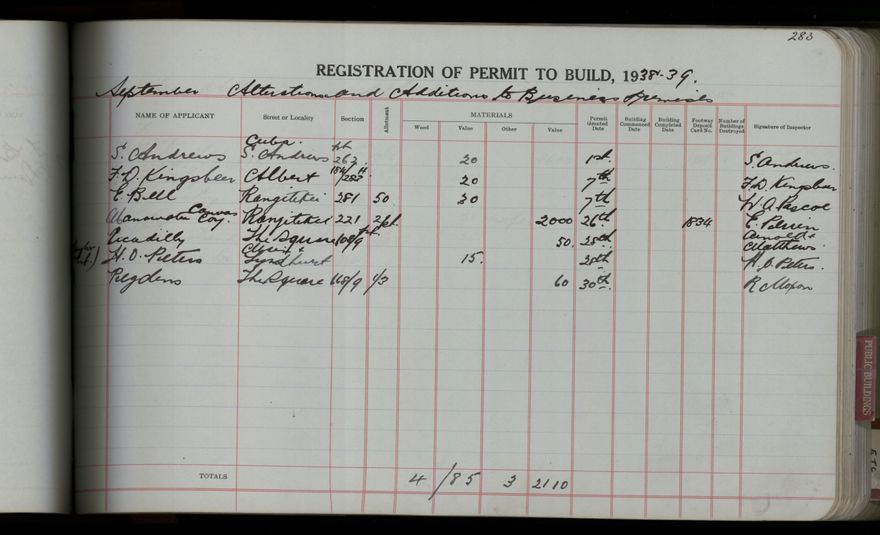 283
REGISTRATION OF PERMIT TO BUILD, 1938-39.
September Alterations and Additions to Business Premises
NAME OF APPLICANT Street or Locality Section Allotment MATERIALS Permit Granted Date Building Commenced Date Building Completed Date Footway Deposit Card No. Number of Buildings Destroyed Signature of Inspector
Wood Value Other Value
S. Andrews Cuba S. Andrews pt 262 20 1st S. Andrews.
F. D. Kingsbeer Albert 20 7th F. D. Kingsbeer
E. Bell Rangitikei 281 50 30 7th W. A. Pascoe
Manawatu Canvas Coy. Rangitikei 221 2pt 2000 26th 1834 E. Perrin
Picadilly The Square 50. 28th Arnold & Matthews.
H. O. Peters Lyndhurst 15. 28th H. O. Peters.
Regdens The Square 168/9 1/3 60 30th R Moxon
TOTALS 4 /85 3 2110
PUBLIC BUILDINGS